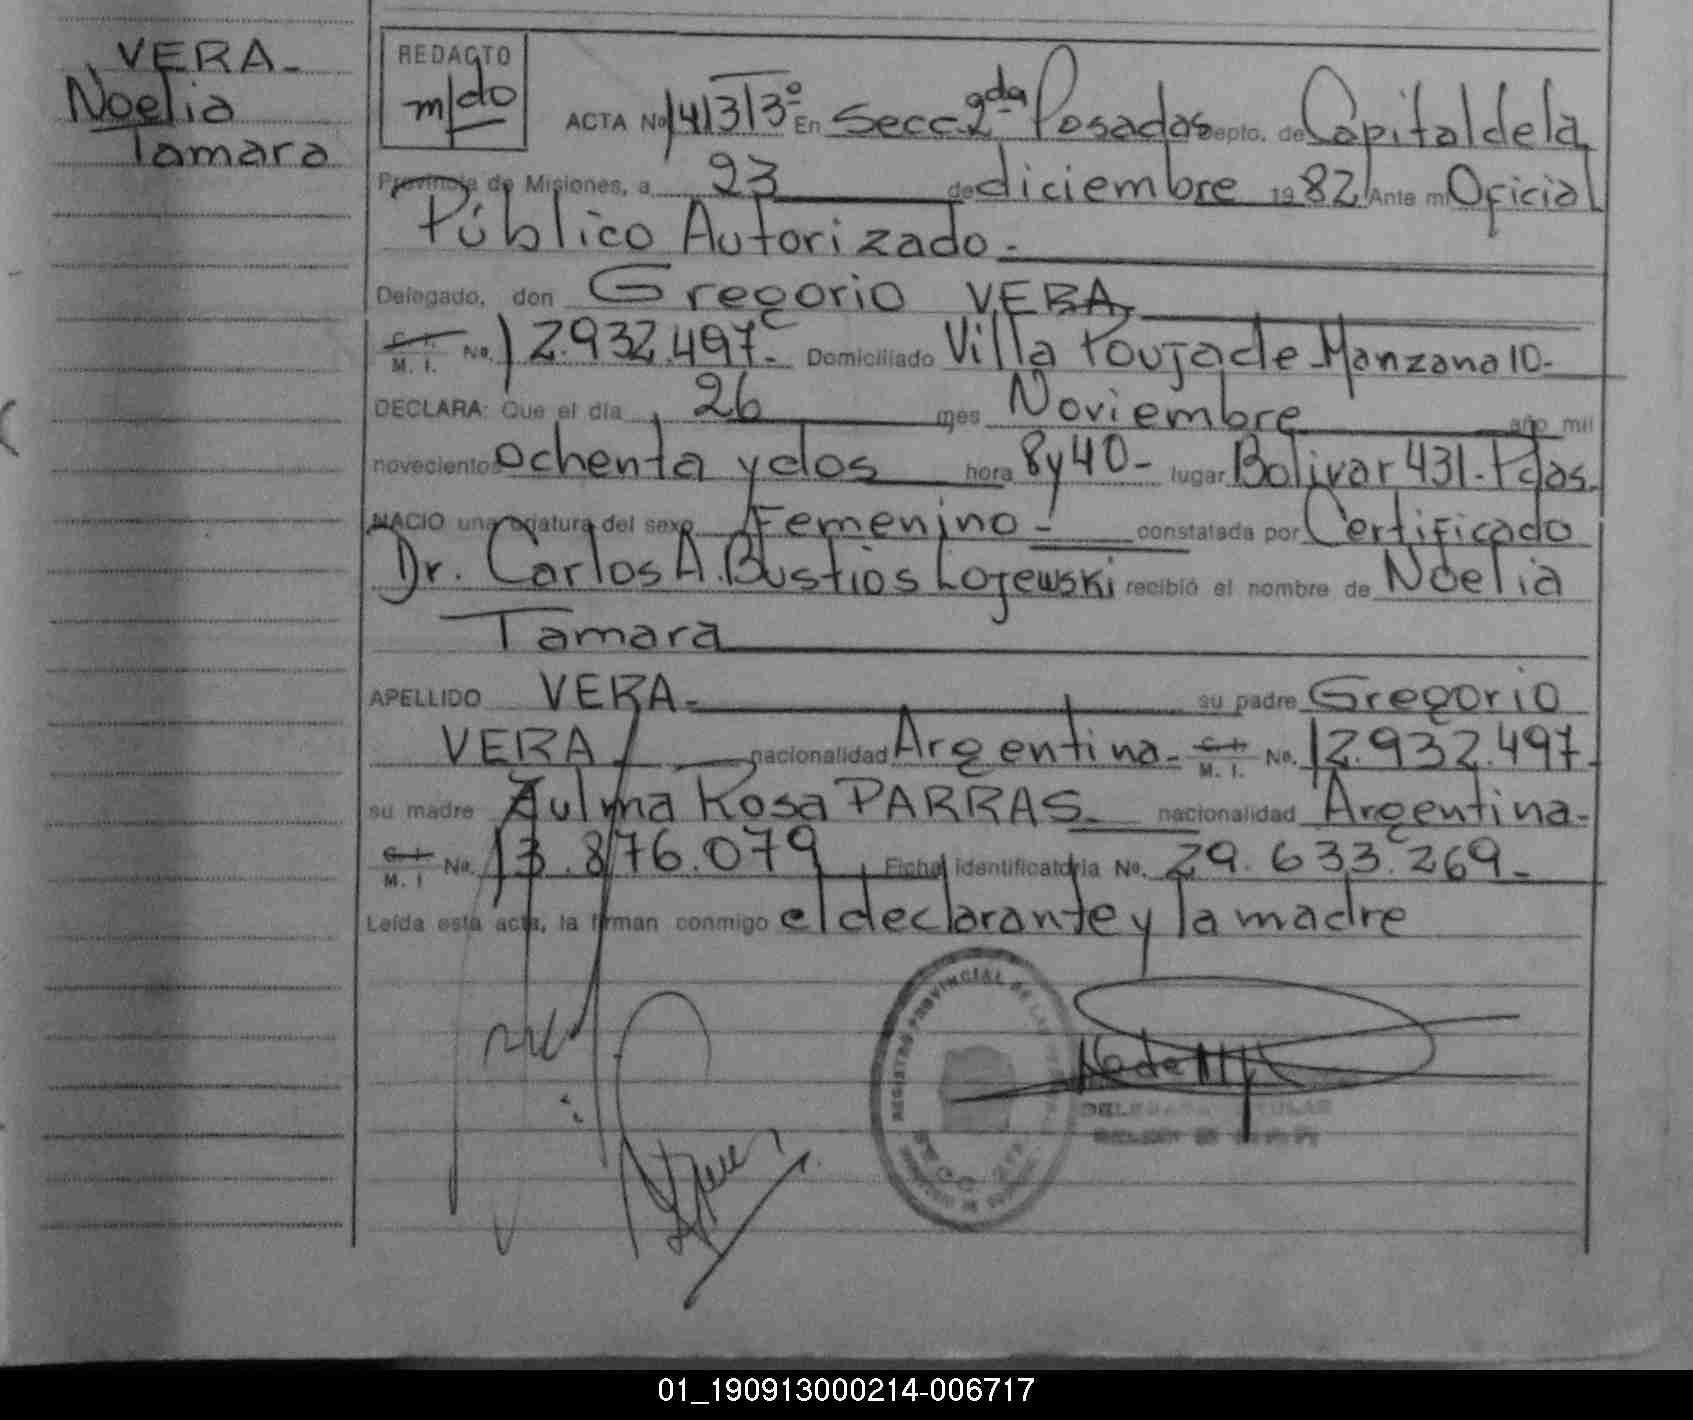 VERA-
Noelia
Tamara
REDACTO
m/do
ACTA No 1413/3º En Secc. 2da Posadas Depto. de Capital de la
Provincia de Misiones, a 23 de diciembre 1982 Ante mi Oficial
Público Autorizado.-
Delegado, don Gregorio VERA,
C. I.
M. I. No. 12.932.497.- Domiciliado Villa Poujade-Manzana 10-
DECLARA: Que el día 26 mes Noviembre año mil
novecientos ochenta y dos hora 8 y 40- lugar Bolivar 431. Pdas.
NACIO una criatura del sexo Femenino- constatada por Certificado
Dr. Carlos A. Bustios Lojewski recibió el nombre de Noelia
Tamara
APELLIDO VERA- su padre Gregorio
VERA nacionalidad Argentina- C. I. M. I. No. 12.932.497-
su madre Zulma Rosa PARRAS- nacionalidad Argentina-
C. I.
M. I No. 13.876.079 Ficha identificatoria No. 29.633.269-
Leída esta acta, la firman conmigo el declarante y la madre
REGISTRO PROVINCIAL DE LAS
SECC. 2da
01_190913000214-006717